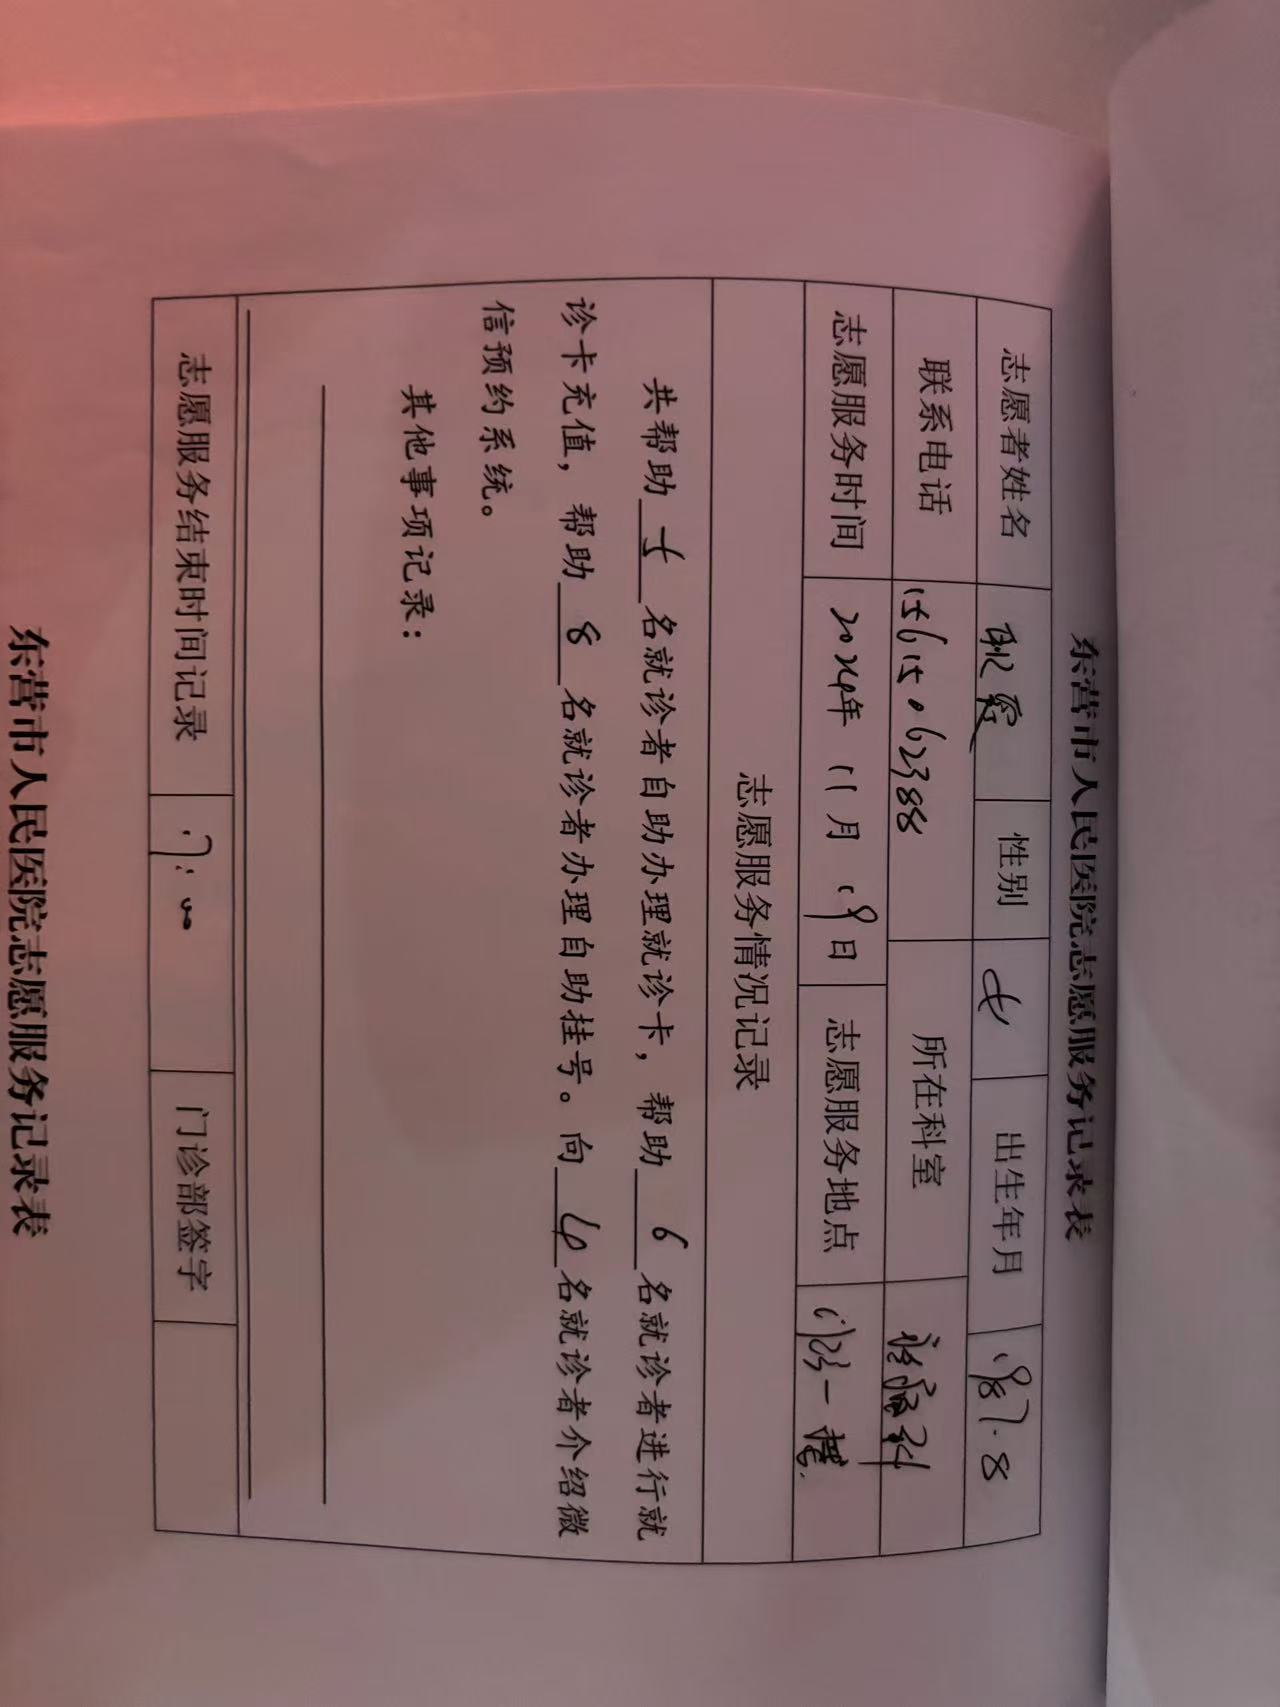 东营市人民医院志愿服务记录表
志愿者姓名 性别 女 出生年月 1987.8
联系电话 15615062388 所在科室
志愿服务时间 2024年 11月 19日 志愿服务地点 门诊一楼
志愿服务情况记录
共帮助 5 名就诊者自助办理就诊卡，帮助 6 名就诊者进行就
诊卡充值，帮助 8 名就诊者办理自助挂号。向 4 名就诊者介绍微
信预约系统。
其他事项记录：
志愿服务结束时间记录 17:00 门诊部签字
东营市人民医院志愿服务记录表